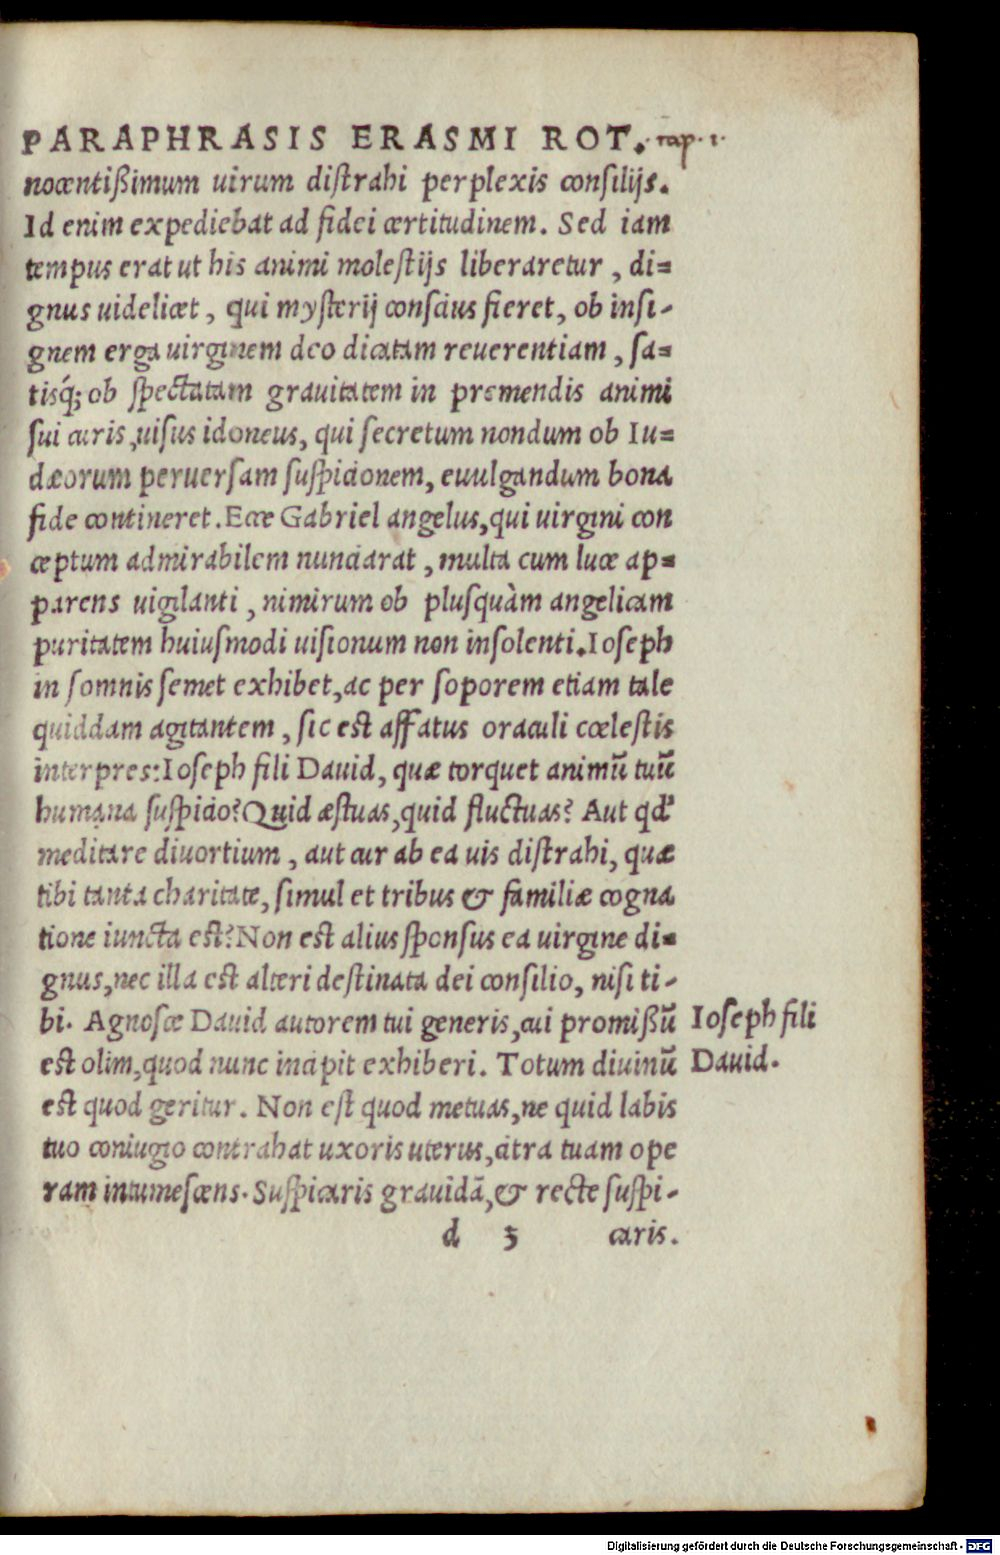 PARAPHRASIS ERASMI ROT. cap. 1.
nocentißimum uirum distrahi perplexis consilijs.
Id enim expediebat ad fidei certitudinem. Sed iam
tempus erat ut his animi molestijs liberaretur, di=
gnus uidelicet, qui mysterij conscius fieret, ob insi-
gnem erga uirginem deo dicatam reuerentiam, sa=
tisq́; ob spectatam grauitatem in premendis animi
sui curis, uisus idoneus, qui secretum nondum ob Iu=
dæorum peruersam suspicionem, euulgandum bona
fide contineret. Ecce Gabriel angelus, qui uirgini con
ceptum admirabilem nunciarat, multa cum luce ap=
parens uigilanti, nimirum ob plusquàm angelicam
puritatem huiusmodi uisionum non insolenti. Ioseph
in somnis semet exhibet, ac per soporem etiam tale
quiddam agitantem, sic est affatus oraculi cœlestis
interpres: Ioseph fili Dauid, quæ torquet animū tuū
humana suspicio? Quid æstuas, quid fluctuas? Aut qd'
meditare diuortium, aut cur ab ea uis distrahi, quæ
tibi tanta charitate, simul et tribus & familiæ cogna
tione iuncta est? Non est alius sponsus ea uirgine di=
gnus, nec illa est alteri destinata dei consilio, nisi ti-
bi. Agnosce Dauid autorem tui generis, cui promißū
est olim, quod nunc incipit exhiberi. Totum diuinū
est quod geritur. Non est quod metuas, ne quid labis
tuo coniugio contrahat uxoris uterus, citra tuam ope
ram intumescens. Suspicaris grauidā, & recte suspi-
d 3 caris.
Ioseph fili
Dauid.
Digitalisierung gefördert durch die Deutsche Forschungsgemeinschaft - DFG